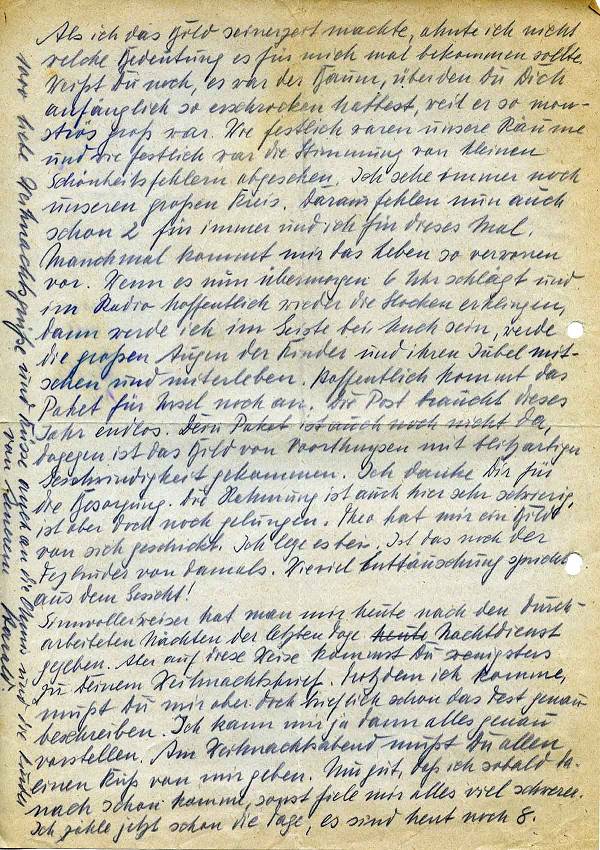 Als ich das Bild seinerzeit machte, ahnte ich nicht
welche Bedeutung es für mich mal bekommen sollte.
Weißt Du noch, es war der Baum, über den Du Dich
anfänglich so erschrocken hattest, weil er so mon-
strös groß war. Wie festlich waren unsere Räume
und wie festlich war die Stimmung von kleinen
Schönheitsfehlern abgesehen. Ich sehe immer noch
unseren großen Kreis. Daraus fehlen nun auch
schon 2 für immer und ich für dieses Mal.
Manchmal kommt mir das Leben so verworren
vor. Wenn es nun übermorgen 6 Uhr schlägt und
im Radio hoffentlich wieder die Glocken erklingen,
dann werde ich im Geiste bei Euch sein, werde
die großen Augen der Kinder und ihren Jubel mit-
sehen und miterleben. Hoffentlich kommt das
Paket für Insel noch an. Die Post braucht dieses
Jahr endlos. Dein Paket ist auch noch nicht da,
dagegen ist das Bild von mit blitzartiger
Geschwindigkeit gekommen. Ich danke Dir für
die Besorgung. Die Rahmung ist auch hier sehr schwierig,
ist aber doch noch gelungen. Theo hat mir ein Bild
von sich geschickt. Ich lege es bei. Ist das noch der
von damals. Wieviel Enttäuschung spricht
aus dem Gesicht!
Sinnvollerweise hat man mir heute nach den durch-
arbeiteten Nächten der letzten Tage Heute Nachtdienst
gegeben. Aber auf diese Weise kommst Du wenigstens
zu Deinem Weihnachtsbrief. Trotzdem ich komme,
mußt Du mir aber doch brieflich schon das Fest genau
beschreiben. Ich kann mir ja dann alles genau
vorstellen. Am Weihnachtsabend mußt Du allen
einen Kuß von mir geben. Nun gut, daß ich sobald da-
nach schon komme, sonst fiele mir alles viel schwerer.
Ich zähle jetzt schon die Tage, es sind heut noch 8.
liebe Weihnachtsgrüße und Küsse auch an die und die Kinder
von Deinem